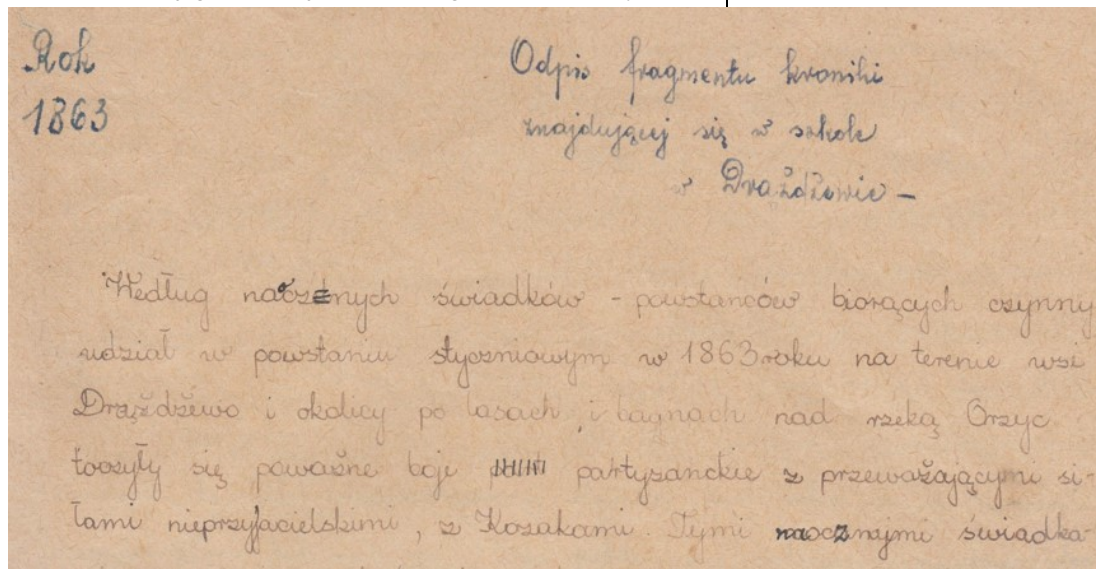 Rok
1863
Odpis fragmentu kroniki
znajdującej się w szkole
w Drażdżewie -
Według naocznych świadków - powstańców biorących czynny
udział w powstaniu styczniowym w 1863 roku na terenie wsi
Drążdżewo i okolicy po lasach, i bagnach nad rzeką Orzyc
toczyły się poważne boje partyzanckie z przeważającymi si-
łami nieprzyjacielskimi, z Kozakami. Tymi naocznymi świadka-